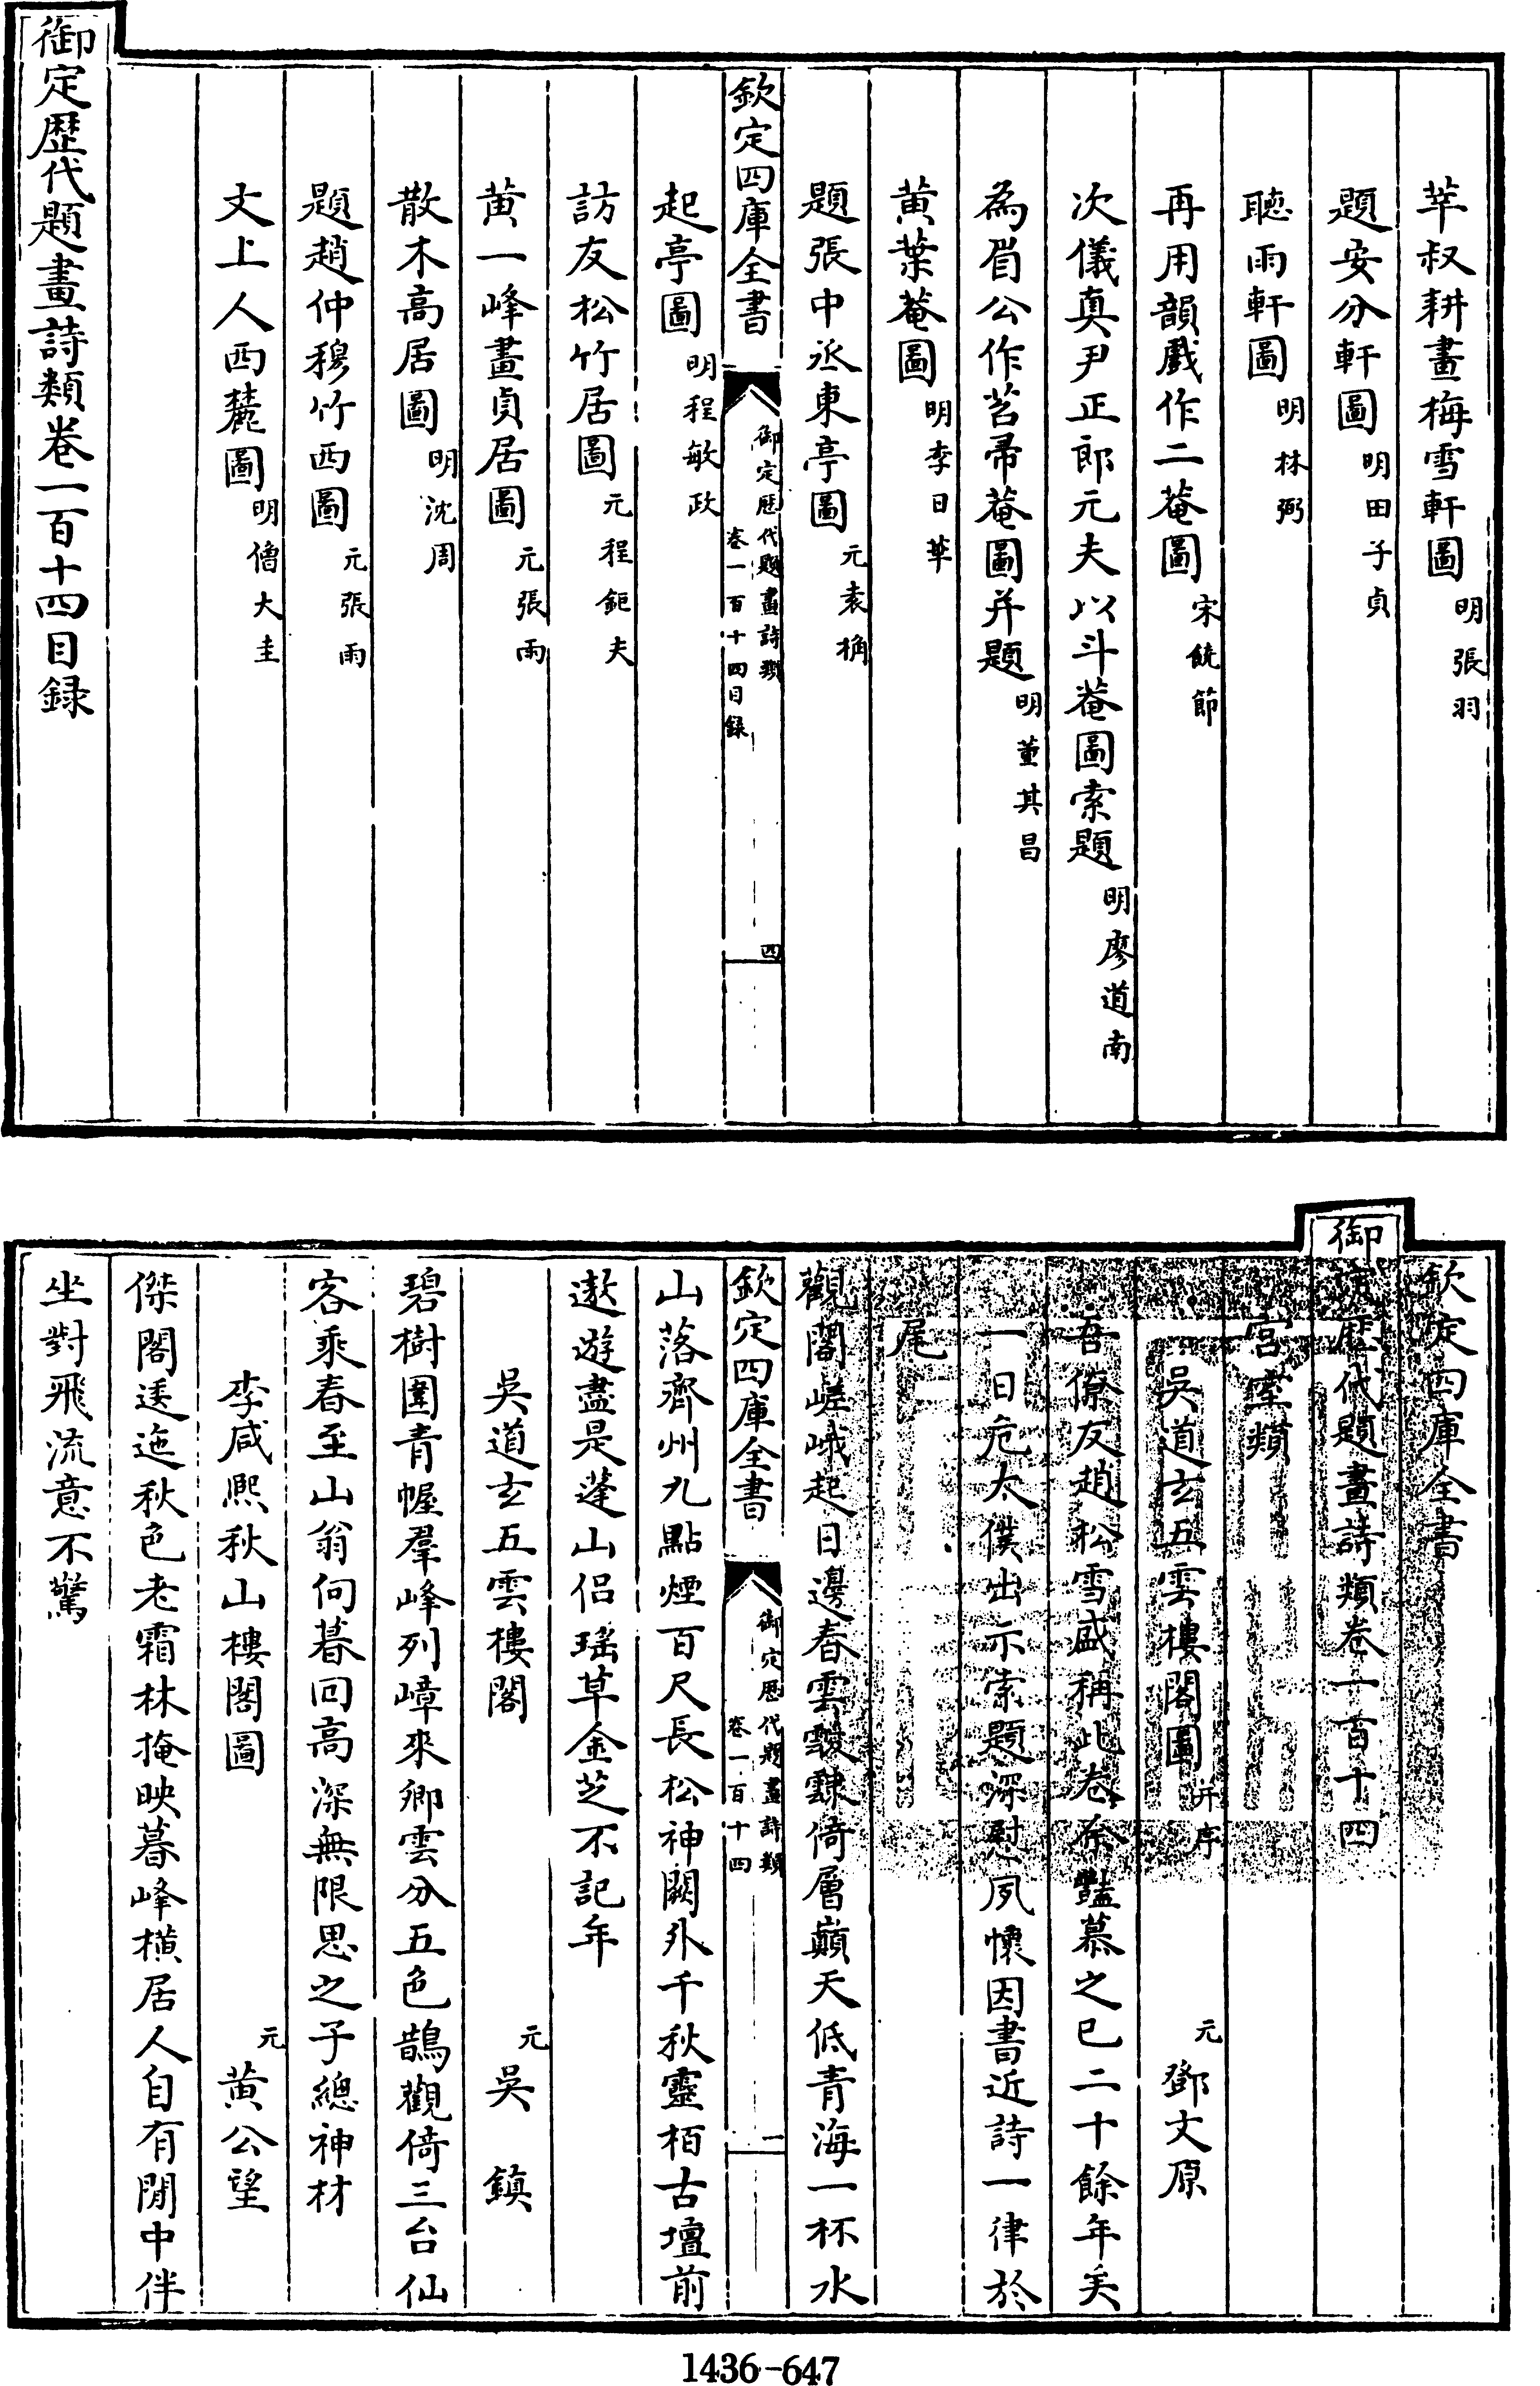 莘叔耕畫梅雪軒圖 明張羽
題安分軒圖 明田子貞
聴雨軒圖 明林弼
再用韻戲作二菴圖 宋饒節
次儀真尹正郎元夫以斗菴圖索題 明廖道南
為眉公作苕帚菴圖并題 明董其昌
黄葉菴圖 明李日華
題張中丞東亭圖 元袁桷
欽定四庫全書 御定歴代題畫詩類 卷一百十四目録 四
起亭圖 明程敏政
訪友松竹居圖 元程鉅夫
黄一峰畫貞居圖 元張雨
散木高居圖 明沈周
題趙仲穆竹西圖 元張雨
丈上人西麓圖 明僧大圭
御定歴代題畫詩類卷一百十四目録
欽定四庫全書
御定歴代題畫詩類卷一百十四
宫室類
吳道玄五雲樓閣圖 并序 元 鄧文原
吾僚友趙松雪盛稱此卷余豔慕之已二十餘年矣
一日危太僕出示索題深慰夙懷因書近詩一律於
尾
觀閣嵯峨起日邊春雲靉靆倚層巔天低青海一杯水
欽定四庫全書 御定歴代題畫詩類 卷一百十四 一
山落齊州九點煙百尺長松神闕外千秋靈栢古壇前
遨遊盡是蓬山侣瑶草金芝不記年
吳道玄五雲樓閣 元 吳鎮
碧樹圍青幄羣峰列嶂來卿雲分五色鵲觀倚三台仙
客乘春至山翁向暮回高深無限思之子總神材
李咸熙秋山樓閣圖 元 黄公望
傑閣逶迤秋色老霜林掩映暮峰横居人自有閒中伴
坐對飛流意不驚
1436-647